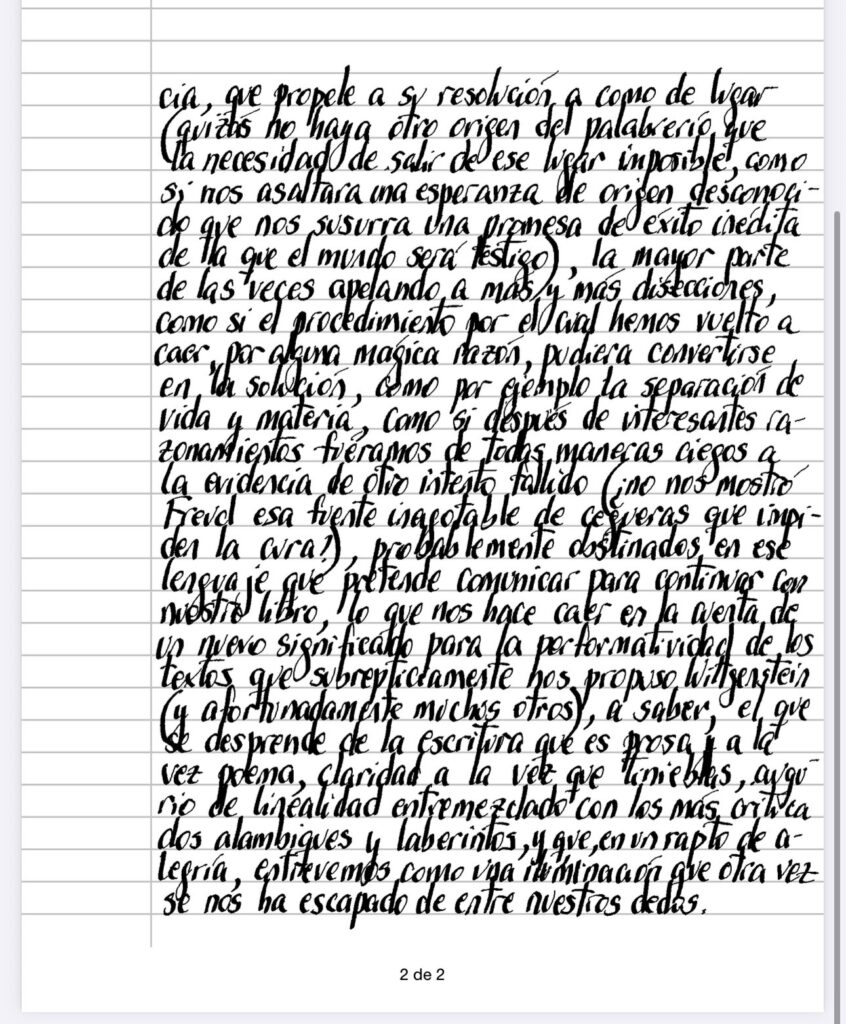 cia, que propele a su resolución a como de lugar
(quizás no haya otro origen del palabrerío que
la necesidad de salir de ese lugar imposible, como
si nos asaltara una esperanza de origen desconoci-
do que nos susurra una promesa de éxito inédita
de la que el mundo será testigo), la mayor parte
de las veces apelando a más y más disecciones,
como si el procedimiento por el cual hemos vuelto a
caer, por alguna mágica razón, pudiera convertirse
en la solución, como por ejemplo la separación de
vida y materia, como si después de interesantes ra-
zonamientos fuéramos de todas maneras ciegos a
la evidencia de otro intento fallido (¿no nos mostró
Freud esa fuente inagotable de cegueras que impi-
den la cura?), probablemente obstinados en ese
lenguaje que pretende comunicar para continuar con
nuestro libro, lo que nos hace caer en la cuenta de
un nuevo significado para la performatividad de los
textos que subrepticiamente nos propuso Wittgenstein
(y afortunadamente muchos otros), a saber, el que
se desprende de la escritura que es prosa y a la
vez poema, claridad a la vez que tinieblas, augu-
rio de linealidad entremezclado con los más critica
dos alambiques y laberintos, y que, en un rapto de a-
legría, entrevemos como una iluminación que otra vez
se nos ha escapado de entre nuestros dedos.
2 de 2